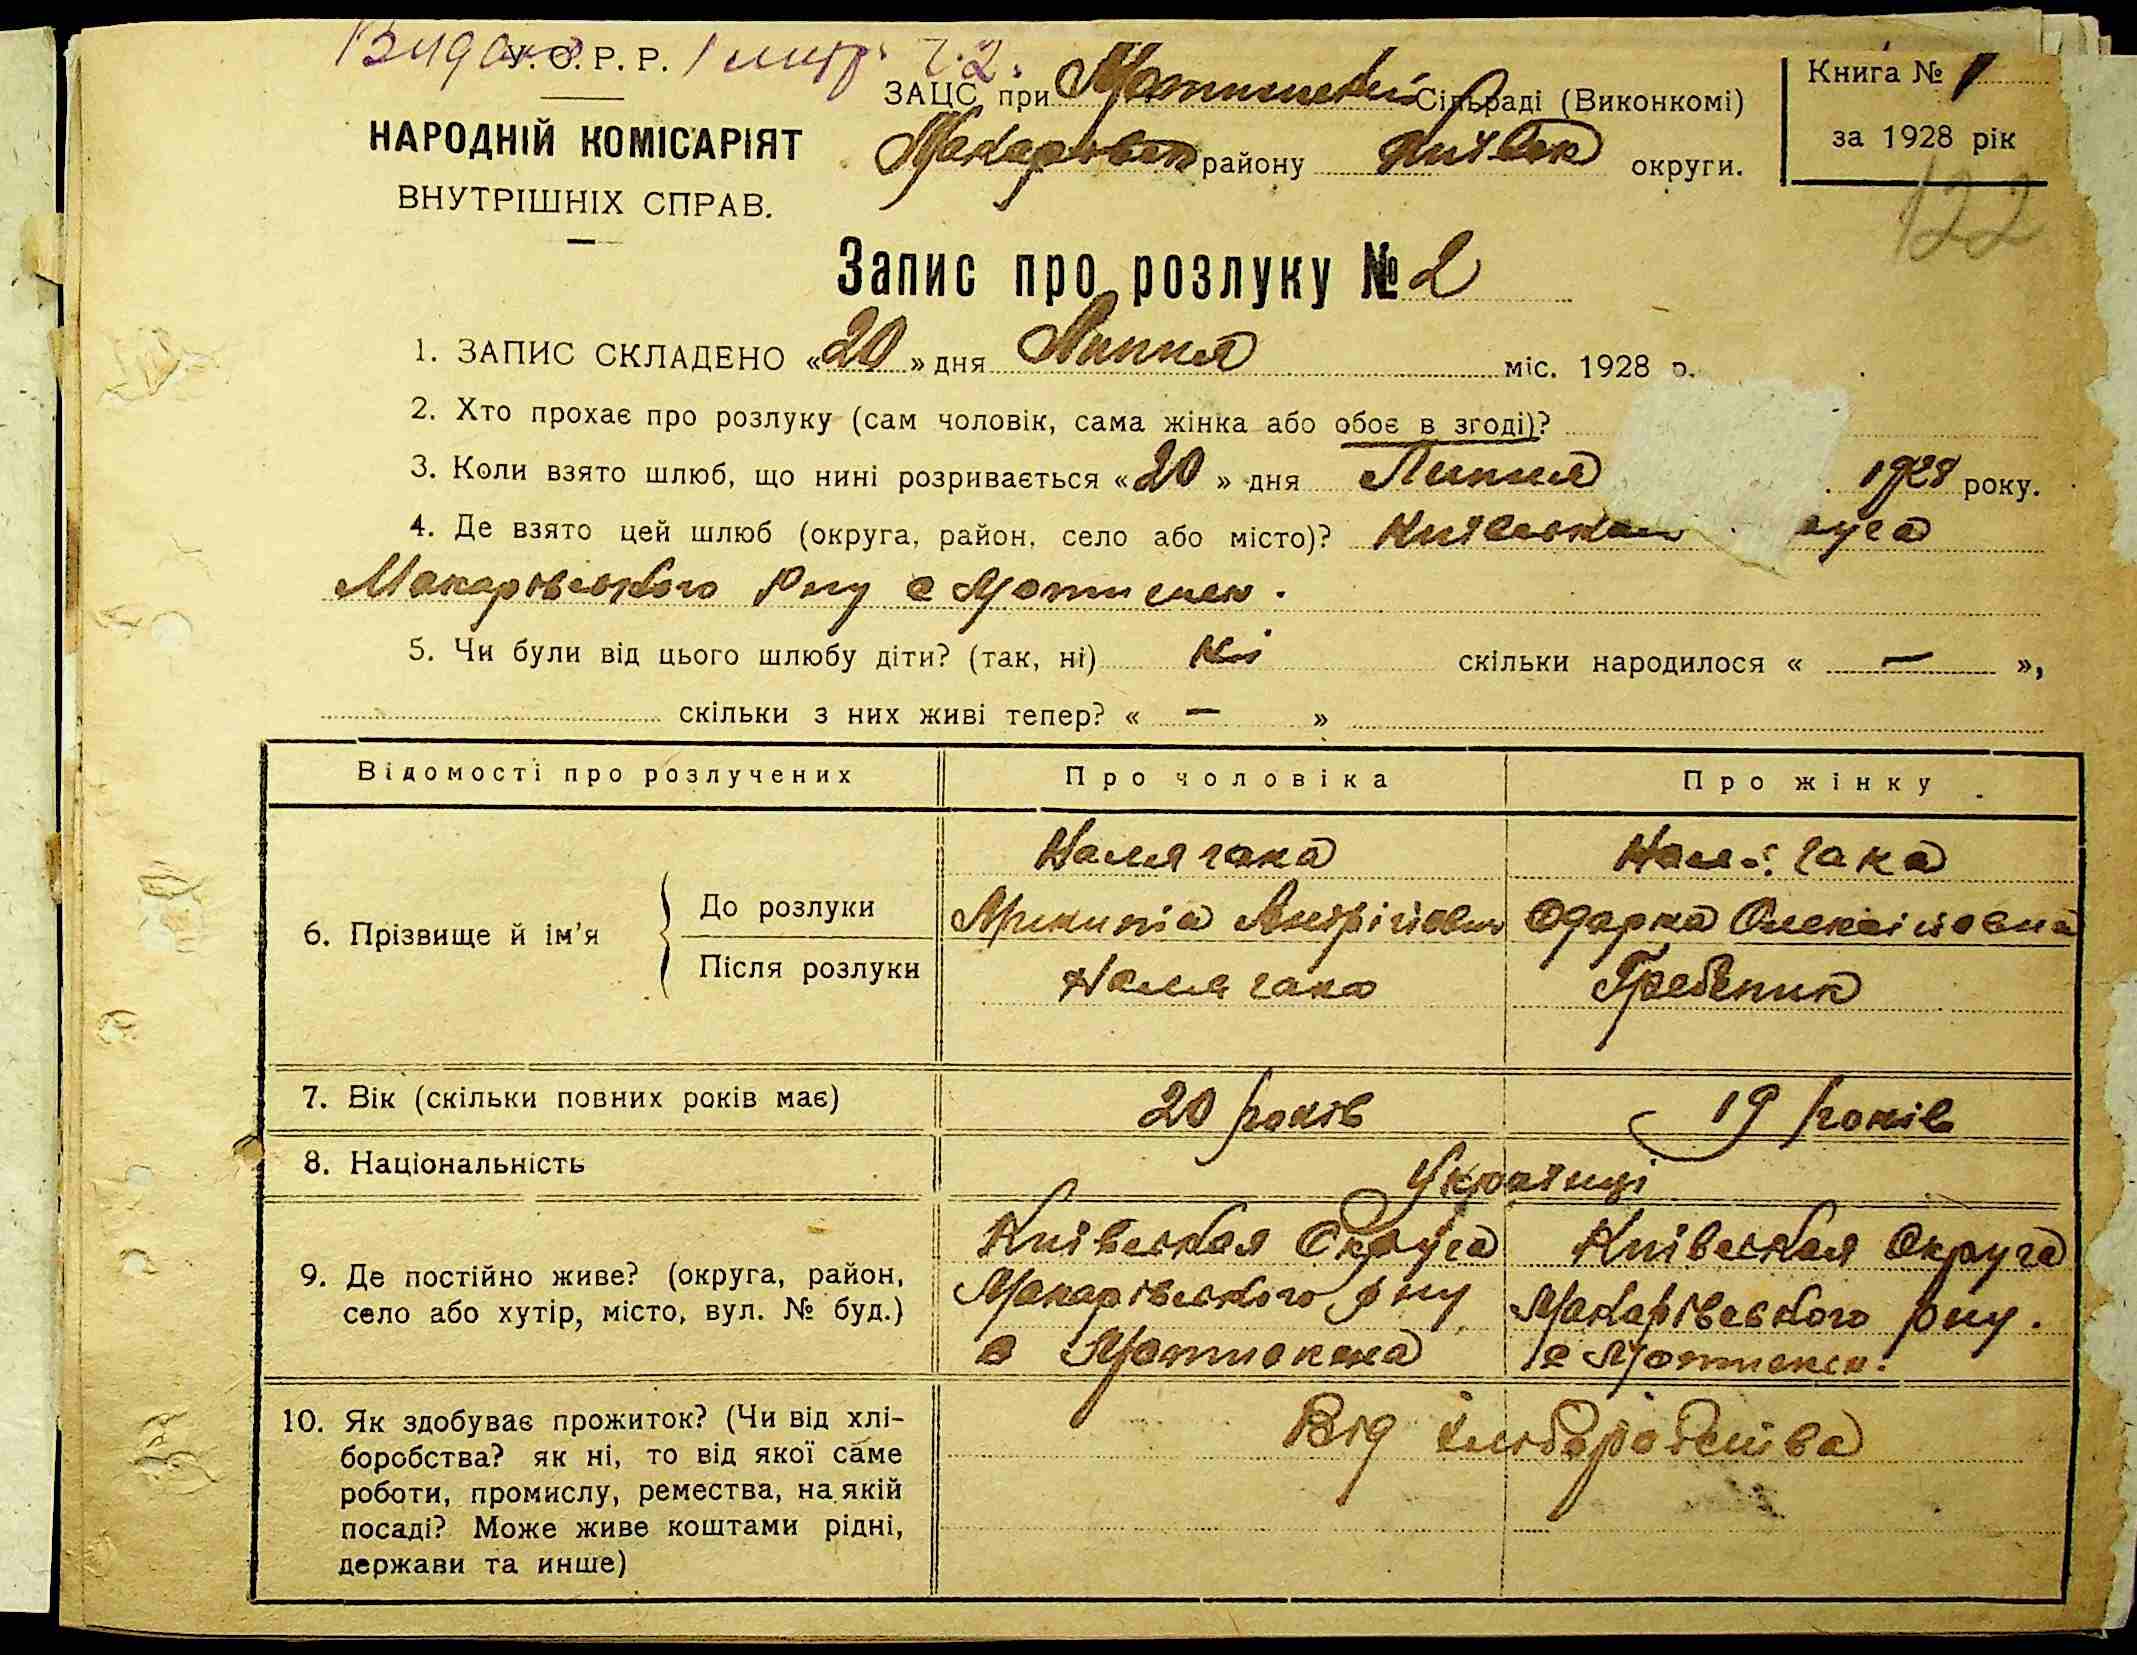 Видано 1 лип. 7.2.
У.С.Р.Р.
НАРОДНІЙ КОМІСАРІЯТ
ВНУТРІШНІХ СПРАВ.
ЗАЦС при Мотижській Сільраді (Виконкомі)
Макарівськ району Київськ округи.
Книга № 1
за 1928 рік
122
Запис про розлуку № 2
1. ЗАПИС СКЛАДЕНО «20» дня Липня міс. 1928 р.
2. Хто прохає про розлуку (сам чоловік, сама жінка або обоє в згоді)?
3. Коли взято шлюб, що нині розривається «20» дня Липня 1928 року.
4. Де взято цей шлюб (округа, район, село або місто)? Київськая
Макарівського Рну с
5. Чи були від цього шлюбу діти? (так, ні) Ні скільки народилося « — »,
скільки з них живі тепер? « — »
Відомості про розлучених Про чоловіка Про жінку
6. Прізвище й ім'я
До розлуки
Після розлуки
Микита Андрійович
Одарка Олексійовна
Гребеник
7. Вік (скільки повних років має) 20 років 19 років
8. Національність Українці
9. Де постійно живе? (округа, район,
село або хутір, місто, вул. № буд.)
Київськая Округа
Макарівського рну
с
Київськая Округа
Макарівського рну.
с
10. Як здобуває прожиток? (Чи від хлі-
боробства? як ні, то від якої саме
роботи, промислу, ремества, на якій
посаді? Може живе коштами рідні,
держави та инше)
Від хліборобства